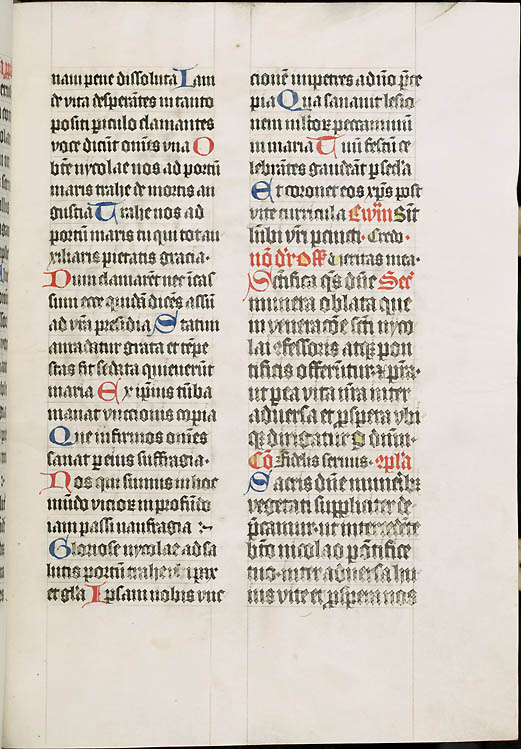 nam pene dissoluta Iam
de vita desperātes in tanto
positi piculo clamantes
voce dicūt om̄es vna O
bt̄e nycolae nos ad portū
maris trahe de mortis an
gustia Trahe nos ad
portū maris tu qui tot au
xiliaris pietatis gracia·
Dum clamarēt nec īcas
sum ecce quidā dicēs assū
ad vr̄a presidia Statim
aura datur grata et tēpe
stas fit sedata quieuerūt
maria Ex ip̄ius tūba
manat vnctionis copia
Que infirmos om̄es
sanat p eius suffragia·
Nos qui sumus in hoc
mūdo vicior̄ in profūdo
iam passi naufragia
Gloriose nycolae ad sa
lutis portū trahe vbi pax
et gl̄a Ipsam nobis vnc
cionē impetres ad dn̄o p̄ce
pia Qua sanauit lesio
nem multor̄ peccaminū
in maria Cui festū ce
lebrātes gaudeāt p secl̄a
Et coronet eos xp̄s post
vite curricula Ewn̄ Sīt
lūbi vr̄i p̄cincti· Credo·
Veritas mea·
Sc̄ifica qs̄ dn̄e Sec̄
munera oblata que
in veneracōe sc̄ti nyco
lai ɔfessoris atq̄ pon
tificis offerūtur
ut p ea vita nr̄a inter
aduersa et p̄spera vbi
q̄ dirigatur p dn̄m·
Cō Fidelis seruus·
Sacris dn̄e munerībꝫ
vegetati suppliciter de
p̄camur· ut intercedēte
bt̄o nicolao pōtifice
tuo· inter aduersa hu
ius vite et p̄spera nos